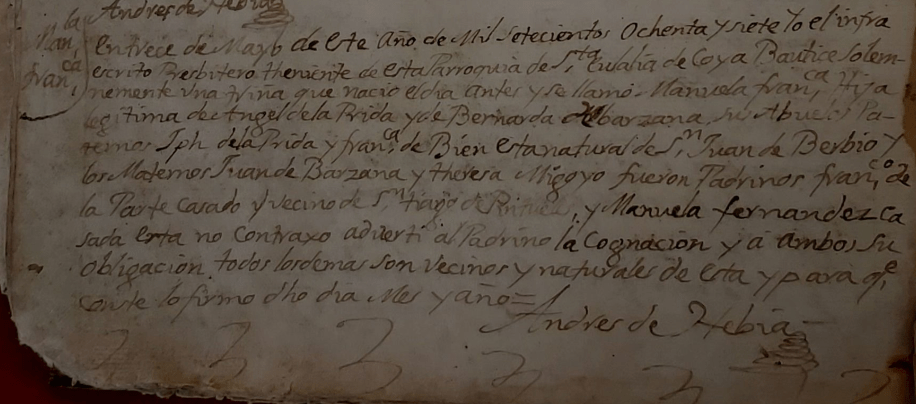 Andres de Hebia
Man,la
fran,ca
En trece de Mayo de este Año de Mil Setecientos Ochenta y siete Yo el infra
escrito Presbitero theniente de esta Parroquia de S,ta Eulalia de Coya Bautice Solem-
nemente una Niña que nacio el dia antes y se llamó Manuela fran,ca Hija
legitima de Angel de la Prida y de Bernarda Barzana, su Abuelos Pa-
ternos Jph de la Prida y fran,ca de Bien esta natural de S,n Juan de Berbio Y
los Maternos Juan de Barzana y theresa Migoyo fueron Padrinos fran,co de
la Parte Casado y vecino de S,n y Manuela fernandez Ca
sada esta no Contraxo adverti al Padrino la Cognacion y a ambos su
obligacion, todos los demas son vecinos y naturales de esta y para q,e
conste lo firmo dho dia Mes y año=
Andres de Hebia